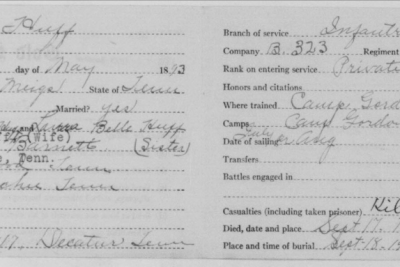 Huff
day of May 1893
Meigs State of Tenn
Married? Yes
and Belle Huff
(Wife)
Burnett (Sister)
Tenn.
Tenn
Tenn
17. Decatur Tenn
Branch of service Infantr
Company B. 323 Regiment
Rank on entering service Private
Honors and citations
Where trained Camp Gord
Camps Camp Gordo
Date of sailing July or Aug
Transfers
Battles engaged in
Casualties (including taken prisoner) Kil
Died, date and place Sept. 17, 1
Place and time of burial Sept. 18, 1